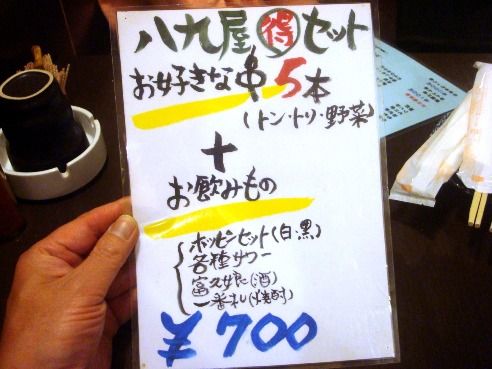 八九屋 得 セット
お好きな串5本
(トン・トリ・野菜)
+
お飲みもの
ホッピーセット(白・黒)
各種サワー
富久娘(酒)
一番札(焼酎)
¥700